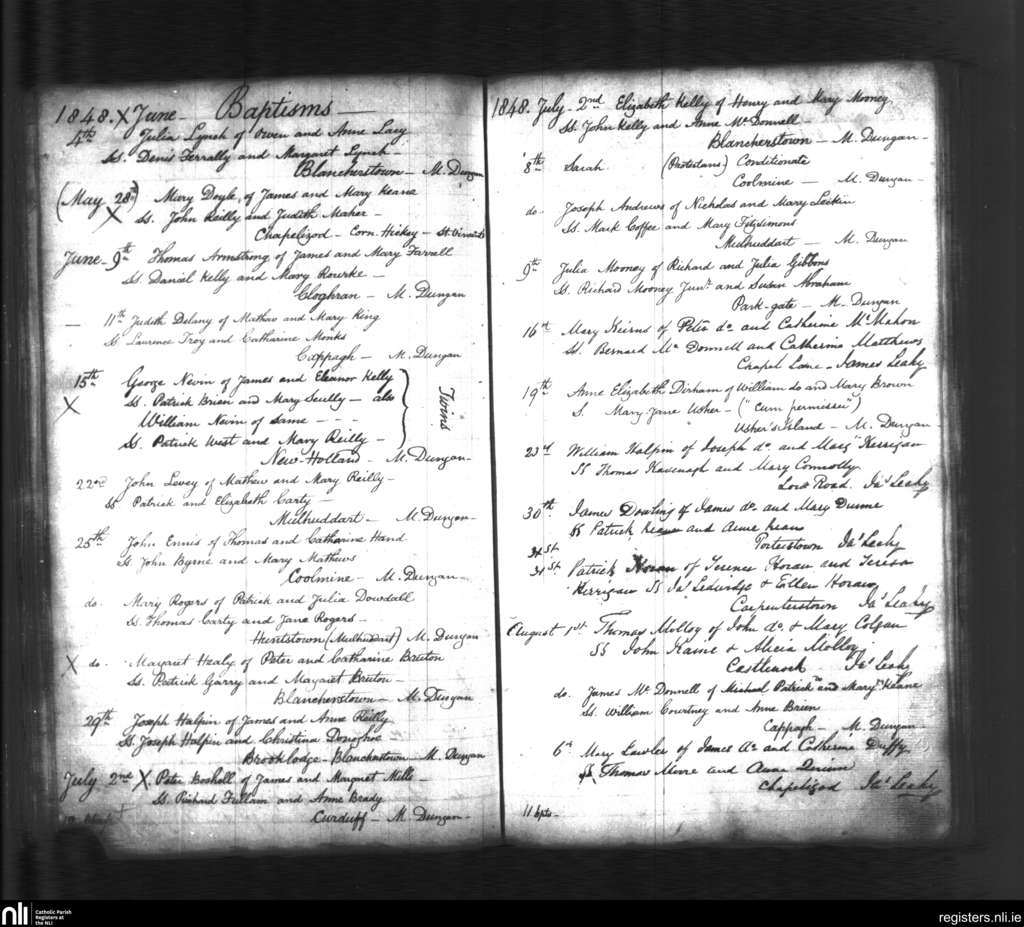 1848. X June - Baptisms -
4th Julia Lynch of Owen and Anne Lacy
Ss. Denis Ferrally and Margaret Lynch -
Blancherstown - M. Dungan
(May 28th) Mary Doyle, of James and Mary Keane
X Ss. John Reilly and Judith Maher -
Chapelizod - Corn. Hickey - St Vincents
June - 9th Thomas Armstrong of James and Mary Farrall
Ss. Daniel Kelly and Mary Rourke -
Cloghran - M. Dungan
- 11th Judith Delany of Mathew and Mary King
Ss Laurence Troy and Catharine Monks
Cappagh - M. Dungan
15th George Nevin of James and Eleanor Kelly
X Ss. Patrick Brien and Mary Scully - also
William Nevin of same - - -
Ss. Patrick West and Mary Reilly -
Twins
New-Holland - M. Dungan -
22nd John Levey of Mathew and Mary Reilly -
Ss Patrick and Elizabeth Carty -
Mulhuddart - M. Dungan -
25th John Ennis of Thomas and Catharine Hand
Ss. John Byrne and Mary Mathews
Coolmine - M. Dungan -
do. Mary Rogers of Patrick and Julia Dowdall
Ss. Thomas Carty and Jane Rogers -
Huntstown (Mulhuddart) M. Dungan
X do. Margaret Healy of Peter and Catharine Bruton
Ss. Patrick Garry and Margaret Bruton -
Blancherstown - M. Dungan
29th Joseph Halpin of James and Anne Reilly
Ss. Joseph Halpin and Christina Donohoe
Brooklodge - Blancherstown - M. Dungan
July 2nd X Peter Boshell of James and Margaret Mills -
Ss. Richard Fullam and Anne Brady
Curduff - M. Dungan -
1848. July - 2nd Elizabeth Kelly of Henry and Mary Mooney
Ss. John Kelly and Anne McDonnell -
Blancherstown - M. Dungan -
8th Sarah (Protestans) Conditionate
Coolmine - M. Dungan -
do. Joseph Andrews of Nicholas and Mary
Ss. Mark Coffee and Mary Fitzsimons
Mulhuddart - M. Dungan
9th Julia Mooney of Richard and Julia Gibbons
Ss. Richard Mooney Junr. and Susan Abraham
Park-gate - M. Dungan
16th Mary Keirns of Peter do. and Catherine McMahon
Ss. Bernard McDonnell and Catherine Matthews
Chapel Lane - James Leahy
19th Anne Elizabeth Dirham of William do and Mary Brown
S. Mary Jane Usher - ("cum permissu")
Usher's Island - M. Dungan -
23rd William Halpin of Joseph do. and Mary Kerrigan
SS Thomas Kavenagh and Mary Connolly
Low Road. Jas Leahy
30th James Dowling of James do. and Mary Dunne
SS Patrick Keane and Anne Keane
Porterstown Jas Leahy
31st
31st Patrick Horan of Terence Horan and Teresa
Kerrigan SS Jas Ledwidge & Ellen Horan
Carpenterstown Jas Leahy
August 1st Thomas Molloy of John do. & Mary Colgan
SS John Kame & Alicia Molloy
Castleknock Jas Leahy
do. James McDonnell of Michael Patrick and Mary Keane
Ss. William Courtney and Anne Brien
Cappagh M. Dungan
6th Mary Lawler of James do. and Catherine Duffy
SS Thomas Moore and Anne
Chapelizod Jas Leahy
11 bpts -
nli Catholic Parish
Registers at
the NLI
registers.nli.ie